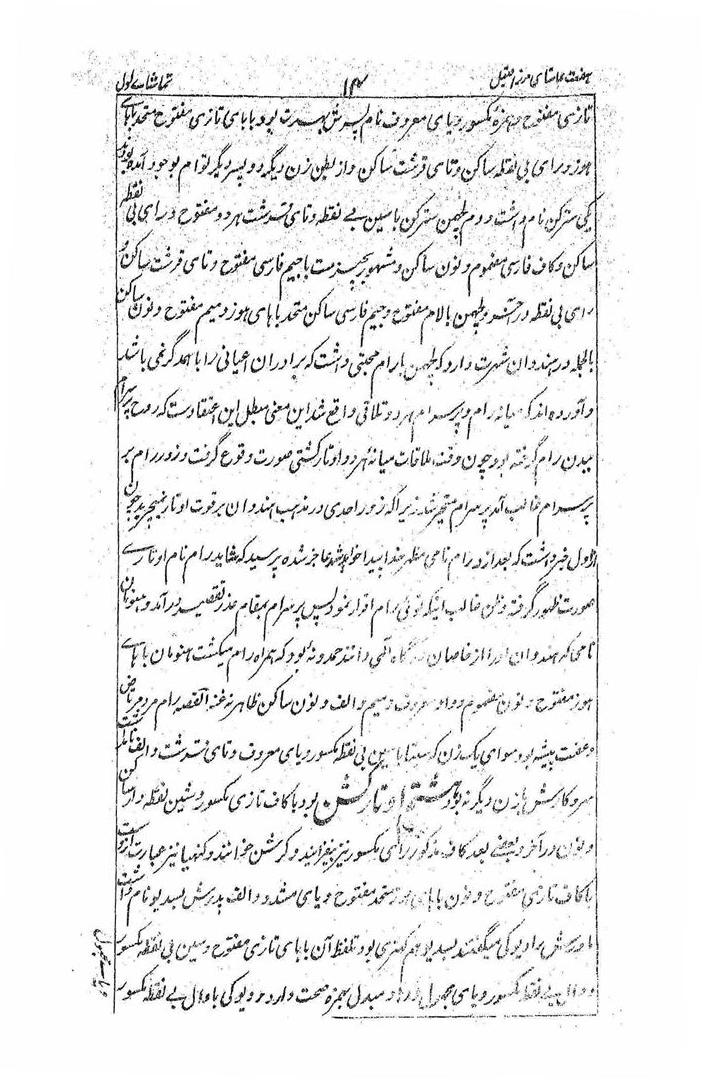 هفت تماشای مرزا قتیل ۱۴ تماشاے اول
تازی مفتوح و همزهٔ مکسور و یای معروف نام پسرش بهرت بود بابای تازی مفتوح متحد بهای
هوز و رای بی نقطه ساکن و تای قرشت ساکن و از بطن زن دیگر دو پسر دیگر توام بوجود آمده بودند
یکی سترکن نام داشت و دوم لچهمن سترکن با سین بے نقطه و تای قرشت هر دو مفتوح و رای بی نقطه
ساکن و کاف فارسی مضموم و نون ساکن و مشهور بچترست با جیم فارسی مفتوح و تای قرشت ساکن و
رای بی نقطه در آخر و لچهمن بالام مفتوح و جیم فارسی ساکن متحد باهای هوز و میم مفتوح و نون ساکن
بالجمله در هندوان شهرت دارد که لچهمن با رام محبتی داشت که برادران اعیانی را با هم دگر نمی باشد
و آورده اند که میانهٔ رام و پرسرام هر دو تلاقی واقع شد این معنی مبطل این اعتقاد ست که روح پرسرام
ببدن رام گرفته بود چون وقت ملاقات میانهٔ هر دو اوتار کشتی صورت وقوع گرفت و زور رام بر
پرسرام غالب آمد پرسرام متحیر شد زیرا که زور احدی در مذهب هندوان بر قوت اوتار نمیچربد چون
از اول خبر داشت که بعد ازو رام نامی مظهر خدا پیدا خواهد شد عاجز شده پرسید که شاید رام نام اوتارے
صورت ظهور گرفته و ظن غالب اینکه توئی رام اقرار نمود پس پرسرام بمقام عذر تقصیر درآمد و هنومان
نامی که هندوان او را از خاصان درگاه الهی دانند حمدونهٔ بود که همراه رام میگشت هنومان باهای
هوز مفتوح و نون مضموم و واو معروف و میم و الف و نون ساکن ظاهر نه غنه القصه رام مرد مرتاض
و عفت پیشه بود سوای یک زن که سیتا با سین بی نقطه مکسور و یای معروف و تای قرشت و الف نام داشت
سر و کارش با زن دیگر نه بود هشتم اوتار کشن بود با کاف تازی مکسور و شین نقطه دار ساکن
و نون در آخر و بعضے بعد کاف مذکور رای مکسور نیز بیفزایند و کرشن خوانند و کنهیا نیز عبارت ازوست
با کاف تازی مفتوح و نون باهای هوز متحد مفتوح و یای مشدد و الف پدرش بسدیو نام داشت
مادرش را دیوکی میگفتند بسدیو هم کهتری بود تلفظ آن بابای تازی مفتوح و سین بی نقطه مکسور
و دال بے نقطه مکسور و یای مجهول و واو مبدل بهمزه صحت دارد و دیوکی با دال بے نقطه مکسور
و یاے مجهول